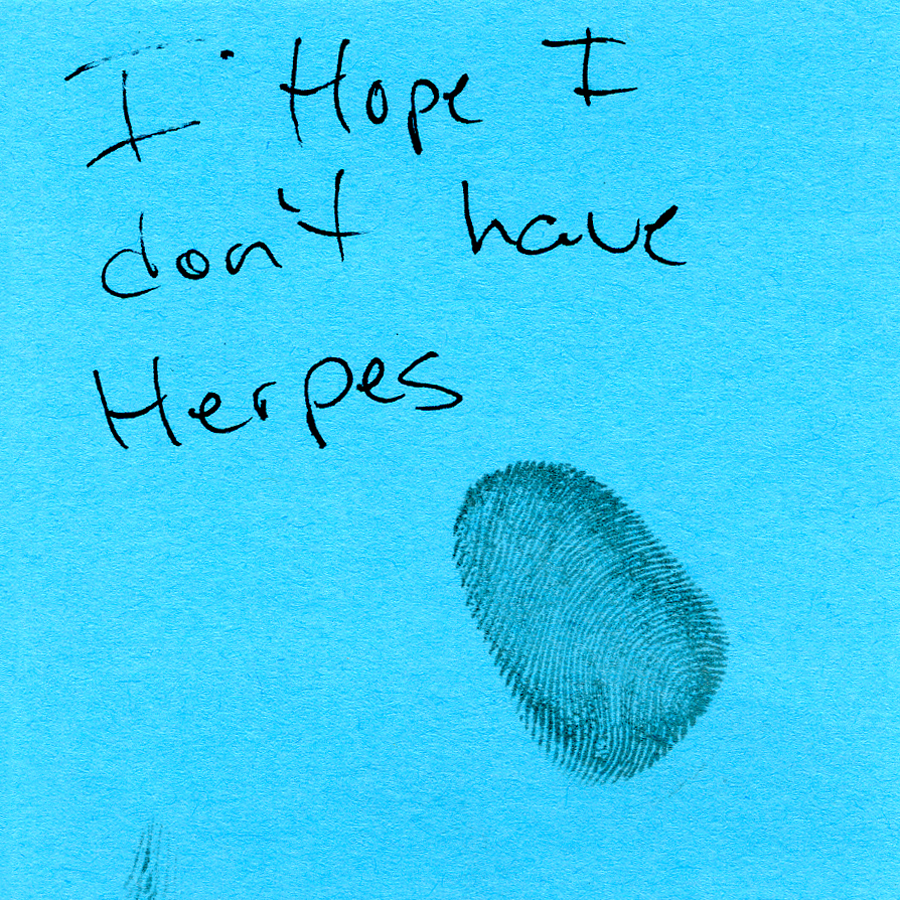 I Hope I
don't have
Herpes